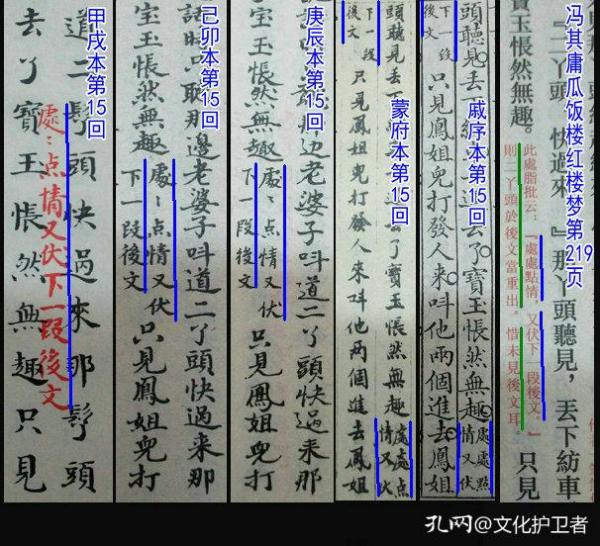 甲戌本第15回
道二髩頭快過來那髩頭
處〻点情又伏下一段後文
去了寶玉悵然無趣只見
己卯本第15回
那邊老婆子呌道二丫頭快过来那
宝玉悵然無趣
處〻点情又伏
下一段後文
只見鳳姐兒打
庚辰本第15回
那边老婆子呌道二丫頭快过来那
宝玉悵然無趣
處〻点情又伏
下一段後文
只見鳳姐兒打
蒙府本第15回
頭聽見丢下
去了寶玉悵然無趣
處處点
情又伏
下一段
後文
只見鳳姐兒打發人來呌他兩個進去鳳姐
戚序本第15回
頭聽見丢下
去了寶玉悵然無趣
處處點
情又伏
下一段
後文
只見鳳姐兒打發人來呌他兩個進去鳳姐
冯其庸瓜饭楼红楼梦第219页
『二丫頭，快過來！』那丫頭聽見，丟下紡車
寶玉悵然無趣。
此處脂批云：「處處點情，又伏下一段後文。」
則二丫頭於後文當重出，惜未見後文耳。
只見
孔网@文化护卫者